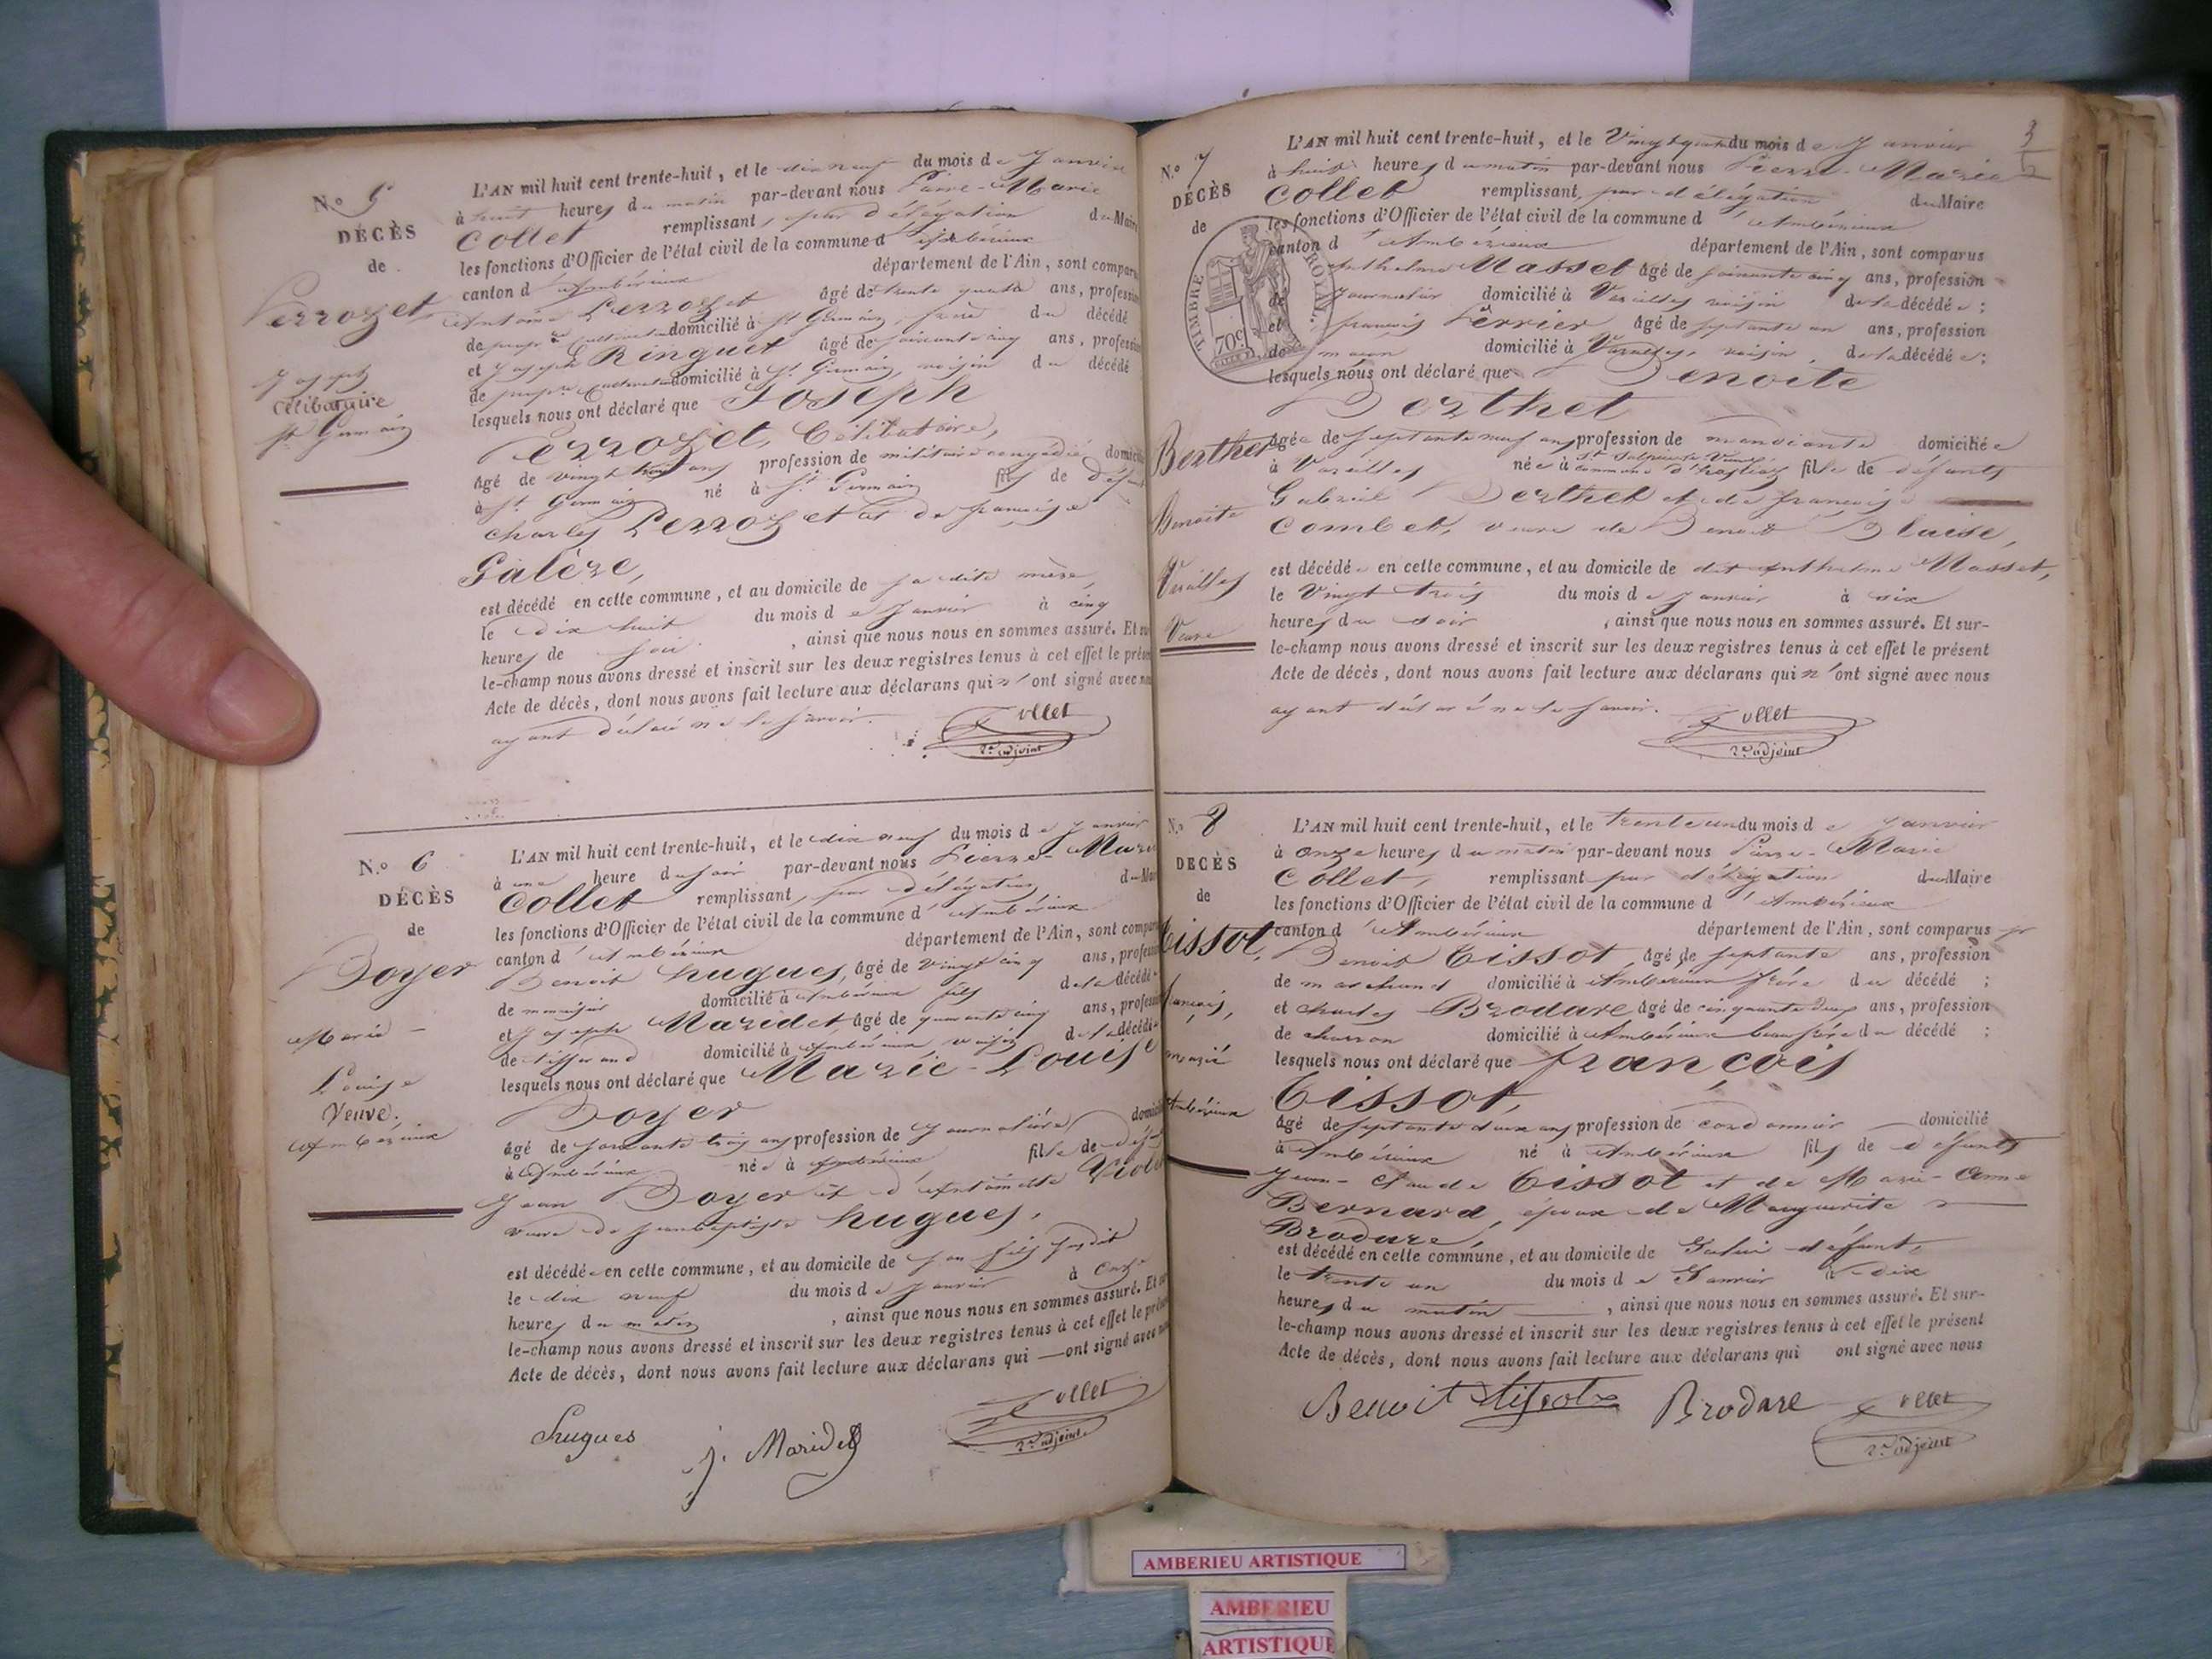 N.º 5
DÉCÈS
de
Perrozet
Joseph
Célibataire
St Germain
L'AN mil huit cent trente-huit, et le dix neuf du mois de Janvier
à huit heures du matin par-devant nous Pierre-Marie
Collet remplissant, par délégation du Maire
les fonctions d'Officier de l'état civil de la commune d'Ambérieux
canton d'Ambérieux département de l'Ain, sont comparus
Antoine Perrozet âgé de trente quatre ans, profession
de propre cultivateur domicilié à St Germain, frère du décédé
et Joseph Ringuet âgé de soixante cinq ans, profession
de propre cultivateur domicilié à St Germain, voisin du décédé
lesquels nous ont déclaré que Joseph
Perrozet, Célibataire,
âgé de vingt trois ans profession de militaire congédié domicilié
à St Germain né à St Germain fils de défunt
Charles Perrozet et de françoise
Galère,
est décédé en cette commune, et au domicile de sa dite mère,
le dix huit du mois de Janvier à cinq
heures de soir, ainsi que nous nous en sommes assuré. Et sur-
le-champ nous avons dressé et inscrit sur les deux registres tenus à cet effet le présent
Acte de décès, dont nous avons fait lecture aux déclarans qui n'ont signé avec nous
ayant déclaré ne le savoir.
Collet
2e adjoint
N.º 6
DÉCÈS
de
Boyer
Marie-
Louise
Veuve.
Ambérieux
L'AN mil huit cent trente-huit, et le dix neuf du mois de Janvier
à une heure du soir par-devant nous Pierre-Marie
Collet remplissant, par délégation, du Maire
les fonctions d'Officier de l'état civil de la commune d'Ambérieux
canton d'Ambérieux département de l'Ain, sont comparus
Benoit hugues, âgé de vingt cinq ans, profession
de domicilié à Ambérieux fils de la décédée
et Joseph Maridet, âgé de quarante cinq ans, profession
de tisserand domicilié à Ambérieux voisin de la décédée
lesquels nous ont déclaré que Marie-Louise
Boyer
âgé de soixante trois ans profession de Journalière domiciliée
à Ambérieux née à Ambérieux fille de défunts
Jean Boyer et d'Antoinette
veuve de Jean baptiste hugues,
est décédée en cette commune, et au domicile de son fils susdit
le dix neuf du mois de Janvier à onze
heures du matin, ainsi que nous nous en sommes assuré. Et sur-
le-champ nous avons dressé et inscrit sur les deux registres tenus à cet effet le présent
Acte de décès, dont nous avons fait lecture aux déclarans qui — ont signé avec nous
Hugues
j. Maridet
Collet
2e adjoint
3
N.º 7
DÉCÈS
de
Berthet
Benoite
Vareilles
Veuve
TIMBRE ROYAL
70c
L'AN mil huit cent trente-huit, et le Vingt quatre du mois de Janvier
à huit heures du matin par-devant nous Pierre-Marie
Collet remplissant, par délégation du Maire
les fonctions d'Officier de l'état civil de la commune d'Ambérieux
canton d'Ambérieux département de l'Ain, sont comparus
Anthelme Masset âgé de soixante cinq ans, profession
de Journalier domicilié à Vareilles voisin de la décédée;
et françois Perrier âgé de septante un ans, profession
de maçon domicilié à Vareilles, voisin, de la décédée;
lesquels nous ont déclaré que Benoite
Berthet
âgée de septante neuf ans profession de mendiante domiciliée
à Vareilles née à commune d' fille de défunts
Gabriel Berthet et de françoise
Combet, veuve de Benoit Blaise,
est décédée en cette commune, et au domicile de dit Anthelme Masset,
le Vingt trois du mois de Janvier à six
heures du soir, ainsi que nous nous en sommes assuré. Et sur-
le-champ nous avons dressé et inscrit sur les deux registres tenus à cet effet le présent
Acte de décès, dont nous avons fait lecture aux déclarans qui n'ont signé avec nous
ayant déclaré ne le savoir.
Collet
2e adjoint
N.º 8
DÉCÈS
de
Tissot,
françois,
marié
Ambérieux
L'AN mil huit cent trente-huit, et le trente un du mois de Janvier
à onze heures du matin par-devant nous Pierre-Marie
Collet, remplissant par délégation du Maire
les fonctions d'Officier de l'état civil de la commune d'Ambérieux
canton d'Ambérieux département de l'Ain, sont comparus
Benoit Tissot, âgé de septante ans, profession
de marchand domicilié à Ambérieux frère du décédé;
et charles Brodare âgé de cinquante deux ans, profession
de charron domicilié à Ambérieux beau frère du décédé;
lesquels nous ont déclaré que françois
Tissot,
âgé de septante deux ans profession de cordonnier domicilié
à Ambérieux né à Ambérieux fils de défunts
Jean-Claude Tissot et de Marie-Anne
Bernard, époux de Marguerite
Brodare,
est décédé en cette commune, et au domicile de Gelui défunt,
le trente un du mois de Janvier à dix
heures du matin, ainsi que nous nous en sommes assuré. Et sur-
le-champ nous avons dressé et inscrit sur les deux registres tenus à cet effet le présent
Acte de décès, dont nous avons fait lecture aux déclarans qui ont signé avec nous
Benoit tissot
Brodare
Collet
2e adjoint
AMBERIEU ARTISTIQUE
AMBERIEU
ARTISTIQUE